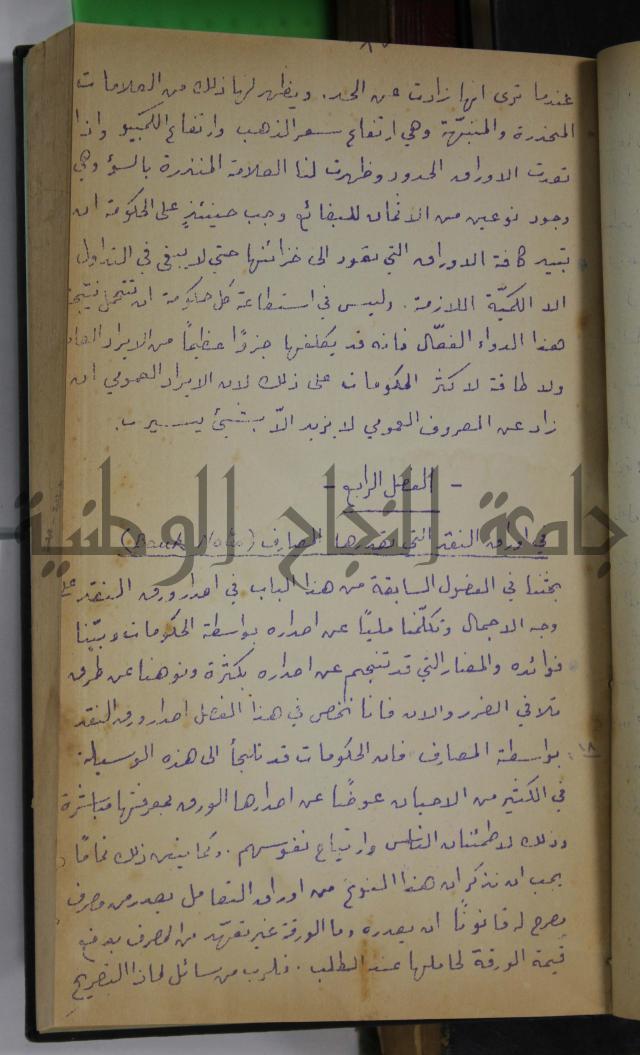 عندما ترى انها زادت عن الحد. ويظهر لها ذلك من العلامات
المحذرة والمنبهّة وهي ارتفاع سعر الذهب وارتفاع الكمبيو واذا
تعدت الاوراق الحدود وظهرت لنا العلامة المنذرة بالسؤ وهي
وجود نوعين من الاثمان للبضائع وجب حينئذٍ على الحكومة ان
تبيد كافة الاوراق التي تعود الى خزائنها حتى لا يبقى في التداول
الا الكميّة اللازمة. وليس في استطاعة كل حكومة ان تتحمل نتيجة
هذا الدواء الفعّال فانه قد يكلفها جزءًا عظيمًا من الايراد العام
ولا طاقة لاكثر الحكومات على ذلك لان الايراد العمومي ان
زاد عن المصروف العمومي لا يزيد الاّ بشيئ يسير.
- الفصل الرابع -
في اوراق النقد التي تصدرها المصارف (Bank Note)
بحثنا في الفصول السابقة من هذا الباب في اصدار ورق النقد على
وجه الاجمال وتكلّمنا مليًا عن اصداره بواسطة الحكومات وبيّنا
فوائده والمضار التي قد تنجم عن اصداره بكثرة ونوهنا عن طرق
تلافي الضرر والان فانا نخص في هذا الفصل اصدار ورق النقد
بواسطة المصارف فان الحكومات قد تلجأ الى هذه الوسيلة
١٨
في الكثير من الاحيان عوضًا عن اصدارها الورق بمعرفتها مباشرة
وذلك لاطمئنان الناس وارتياح نفوسهم. ولما يتبين ذلك تمامًا
يجب ان نذكر ان هذا النوع من اوراق التعامل يصدر من مصرف
مصرح له قانونًا ان يصدره وما الورقة غير تعهّد من المصرف بدفع
قيمة الورقة لحاملها عند الطلب. فلرب من سائل لماذا التصريح
جامعة النجاح الوطنية